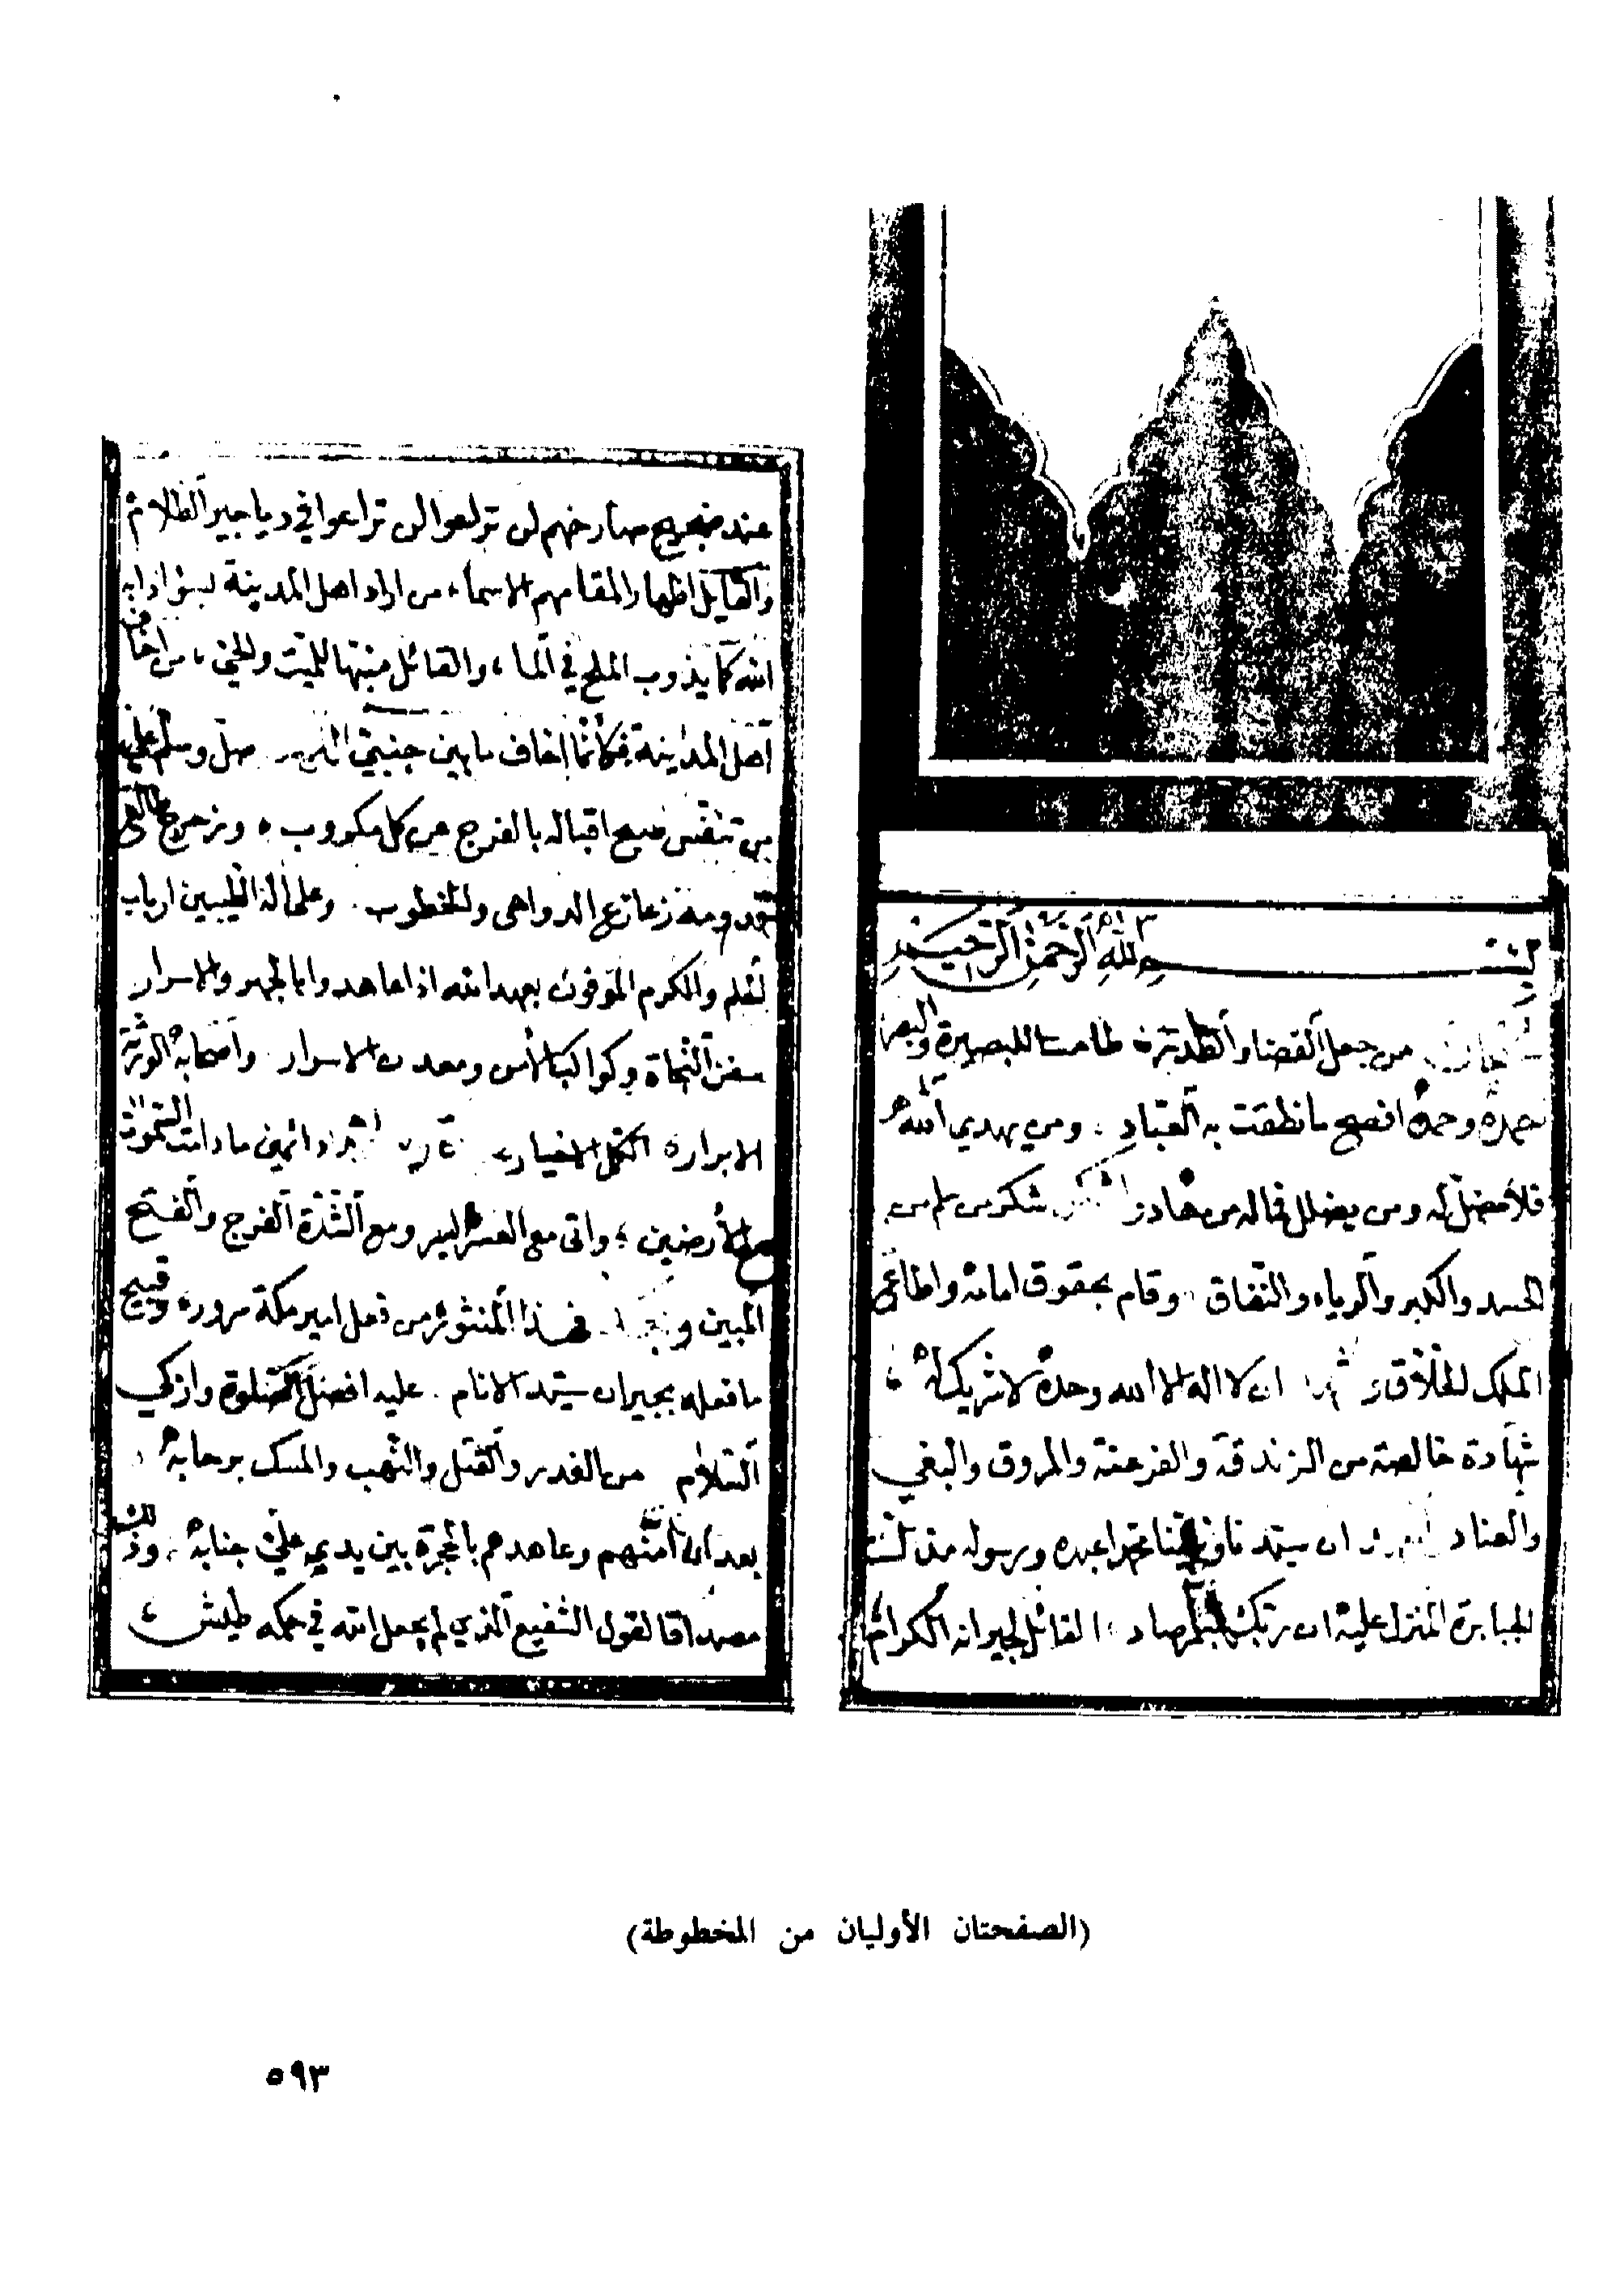 بسم الله الرحمن الرحيم
من جعل القضا والقدر طامسا للبصيرة والبصر
نحمده وحمده افصح ما نطقت به العباد ومن يهدي الله
فلا مضل له ومن يضلل فما له من هاد شكر من سلم من
الحسد والكبر والرياء والنفاق وقام بحقوق امامه واطاعة
الملك الخلاق ان لا اله الا الله وحده لا شريك له
شهادة خالصة من الزندقة والفرعنة والمروق والبغي
والعناد ان سيدنا ونبينا محمدا عبده ورسوله
الجبابرة المنزل عليه ان ربك لبالمرصاد القائل لجيرانه الكرام
عند ضجيج صارخهم لن تراعوا لن تراعوا في دياجير الظلام
والقائل اظهارا لمقامهم الاسماء من اراد اهل المدينة بسؤ اذابه
الله كما يذوب الملح في الماء والقائل منبها للميت والحي من اخاف
اهل المدينة فكأنما اخاف ما بين جنبي صل وسلم عليه
من تنفس صبح اقباله بالفرج عن كل مكروب
قدومه زعازع الدواهي والخطوب وعلى اله الطيبين ارباب
العلم والكرم الموفون بعهد الله اذا عاهدوا بالجهر والاسرار
سفن النجاة وكواكب الأمن ومعدن الاسرار واصحابه الورثة
الابرار الكمل الاخيار دائمين ما دامت السموات
والأرضين واتى مع العسر اليسر ومع الشدة الفرج والفتح
المبين فهذا المنثور من فعل امير مكة سرور وقبيح
ما فعله بجيران سيد الانام عليه افضل الصلوة وازكى
السلام من الغدر والقتل والنهب والمسك برحابه
بعد ان أمنهم وعاهدهم بالحجرة بين يدي علي جنابه
مصداقا لقول الشفيع الذي لم يجعل الله في حكمه طيش
(الصفحتان الأوليان من المخطوطة)
٥٩٣